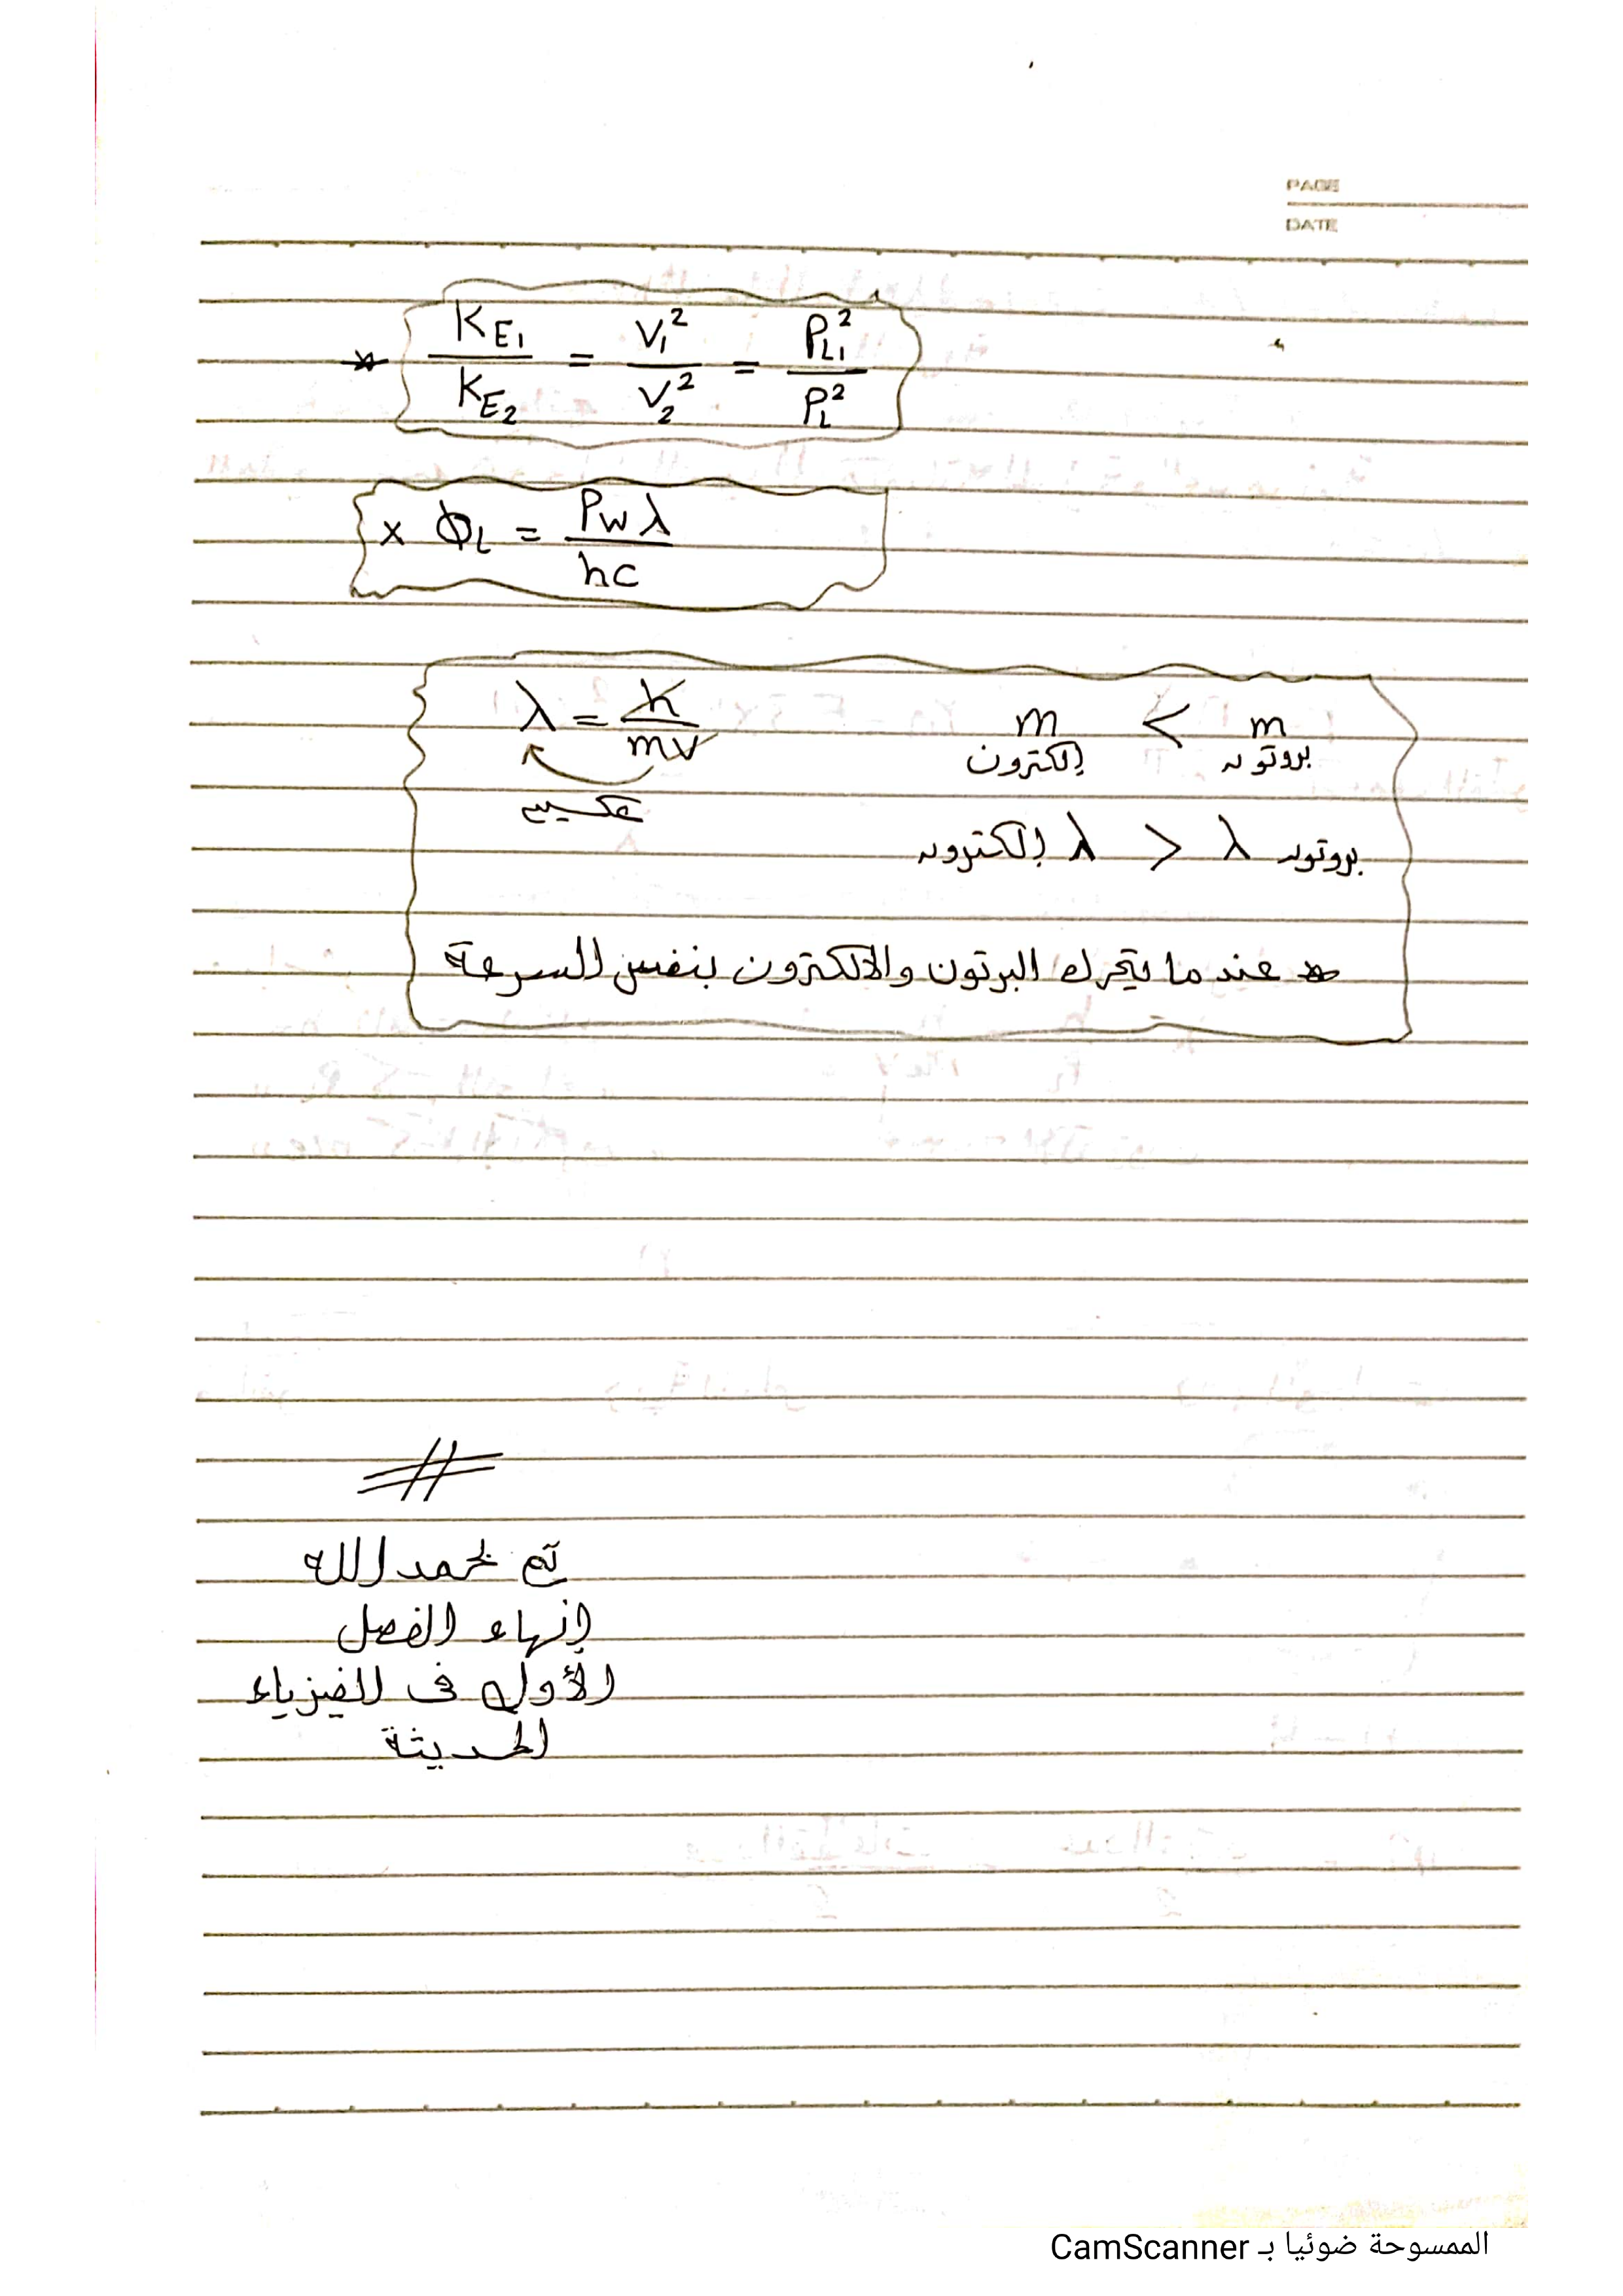 PAGE
DATE
* KE1/KE2 = V1²/V2² = PL1²/PL²
x ΦL = Pw λ / hc
λ = h/mv
عكسي
m إلكترون < m بروتون
إلكترون λ > λ بروتون
* عندما يتحرك البرتون والالكترون بنفس السرعة
تم بحمد الله
إنهاء الفصل
الأول فى الفيزياء
الحديثة
الممسوحة ضوئيا بـ CamScanner